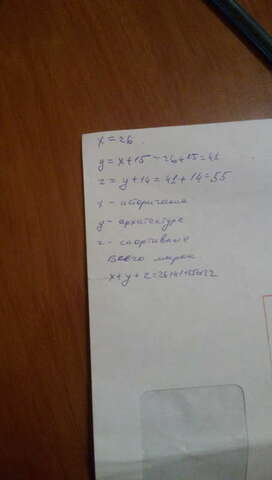 x = 26
y = x + 15 = 26 + 15 = 41
z = y + 14 = 41 + 14 = 55
x - исторических
y - архитектуре
z - спортивных
Всего марок
x + y + z = 26 + 41 + 55 = 122